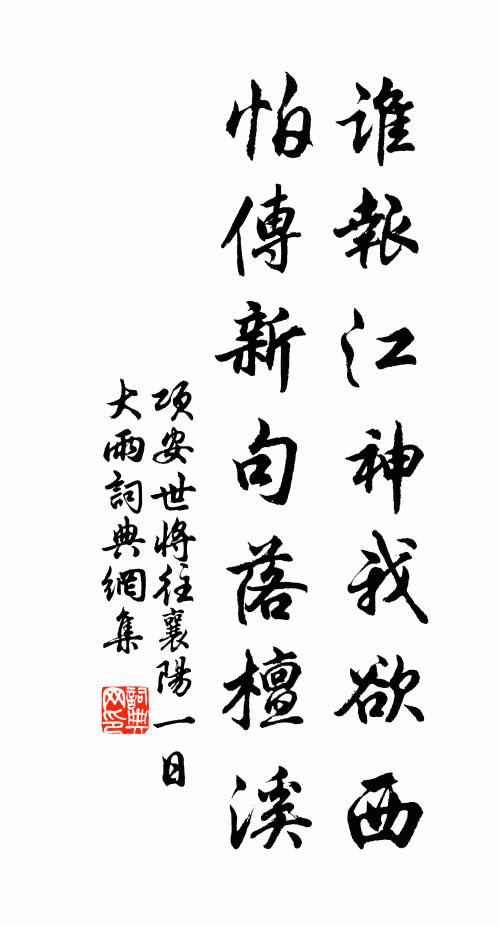 誰報江神我欲西
怕傳新句落檀溪
項安世將往襄陽一日
大雨詞典網集
詞典网印